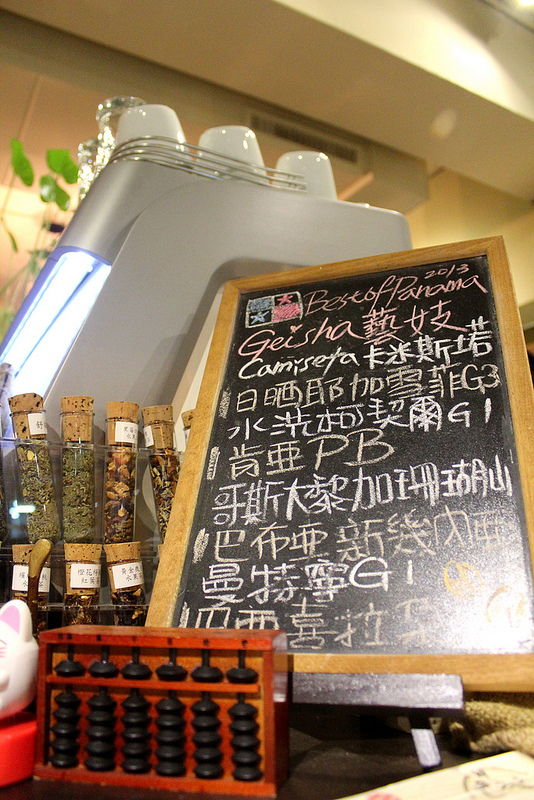 2013
Best of Panama
Geisha 藝妓
Camiseta 卡米斯塔
日晒耶加雪菲G3
水洗柯契爾G1
肯亞PB
哥斯大黎加珊瑚山
巴布亞新幾內亞
曼特寧G1
瓜西喜拉朵